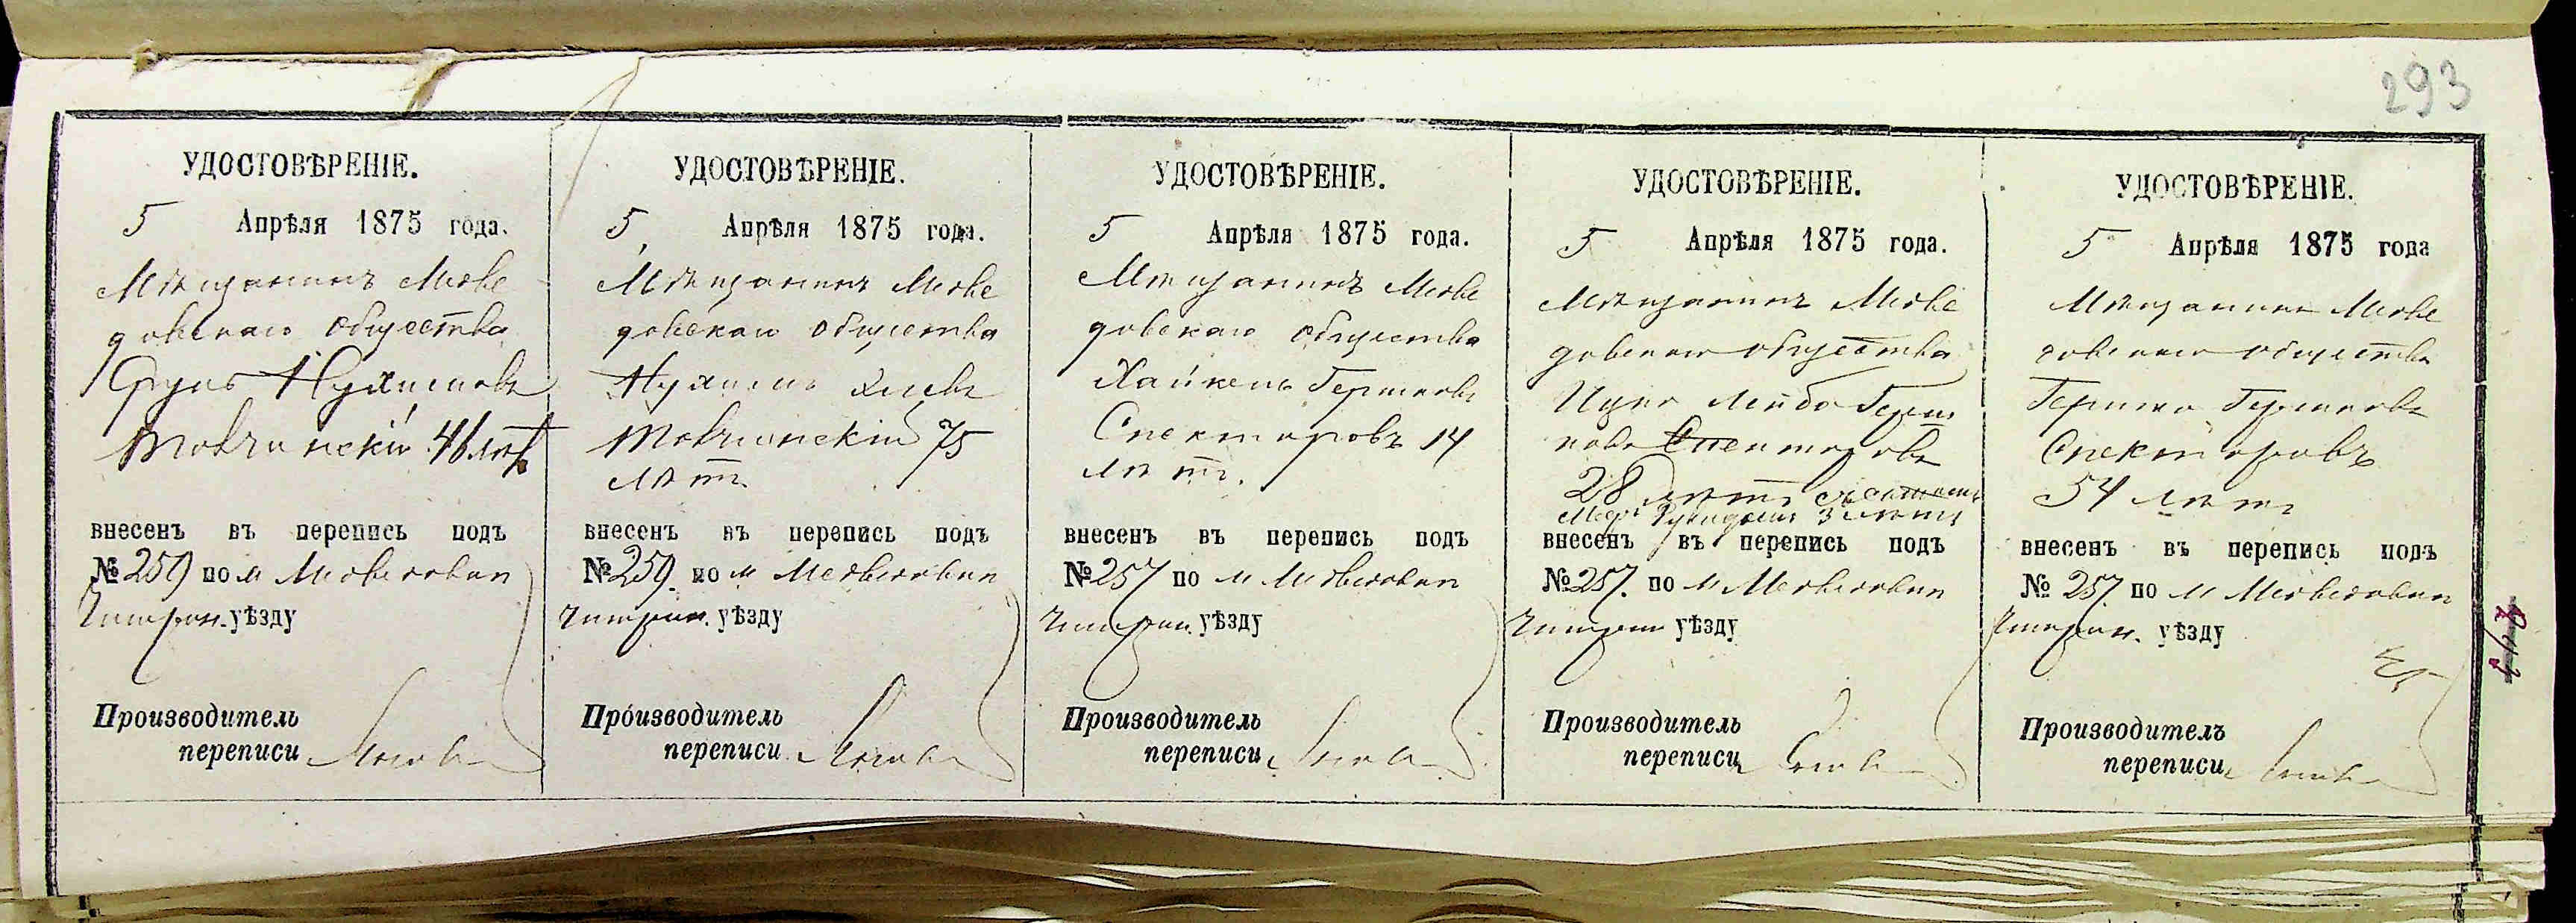 293
УДОСТОВѢРЕНІЕ.
5 Апрѣля 1875 года.
Мѣщанинъ Медве
довскаго общества
Срулъ Нухимовъ
46 лѣтъ
внесенъ въ перепись подъ
№ 259 по м Медведовки
Чигирин. уѣзду
Производитель
переписи
УДОСТОВѢРЕНІЕ.
5 Апрѣля 1875 года.
Мѣщанинъ Медве
довскаго общества
Нухимъ
75
лѣтъ
внесенъ въ перепись подъ
№ 259. по м Медведовки
Чигирин. уѣзду
Производитель
переписи
УДОСТОВѢРЕНІЕ.
5 Апрѣля 1875 года.
Мѣщанинъ Медве
довскаго общества
Хайкель Гершковъ
Спекторовъ 14
лѣтъ.
внесенъ въ перепись подъ
№ 257 по м Медведовки
Чигирин. уѣзду
Производитель
переписи
УДОСТОВѢРЕНІЕ.
5 Апрѣля 1875 года.
Мѣщанинъ Медве
довскаго общества
Ицко Лейба Герш
ковъ Спекторовъ
28 лѣтъ
внесенъ въ перепись подъ
№ 257. по м Медведовки
Чигирин уѣзду
Производитель
переписи
УДОСТОВѢРЕНІЕ.
5 Апрѣля 1875 года
Мѣщанинъ Медве
довскаго общества
Гершко Гершковъ
Спекторовъ
54 лѣтъ
внесенъ въ перепись подъ
№ 257. по м Медведовки
Чигирин. уѣзду
Производитель
переписи